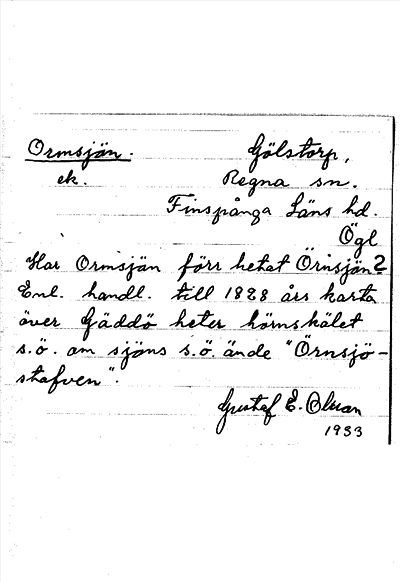 Ormsjön.
Gölstorp,
ek.
Regna sn.
Finspånga Läns hd.
Ögl
Har Ormsjön förr hetat Örnsjön?
Enl. handl. till 1828 års karta
över Gäddö heter hörnskälet
s.ö. om sjöns s.ö. ände "Örnsjö-
stafven".
Gustaf E. Olsson
1933